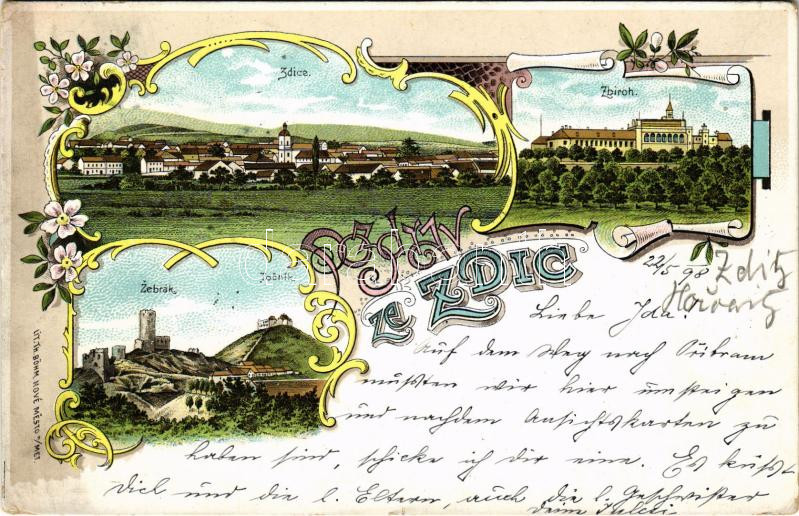 Zdice.
Zbiroh.
Žebrák.
Točník.
Pozdrav
ze ZDIC
LIT. TH. BÖHM, NOVÉ MĚSTO n/MET
22/5 98
Zditz
Liebe Ida!
Auf dem Weg nach Přibram
müssten wir hier umsteigen
und nachdem Ansichtskarten zu
haben sind, schicke ich dir eine. Es küsst
Dich und die l. Eltern, auch die l. Geschwister
dein